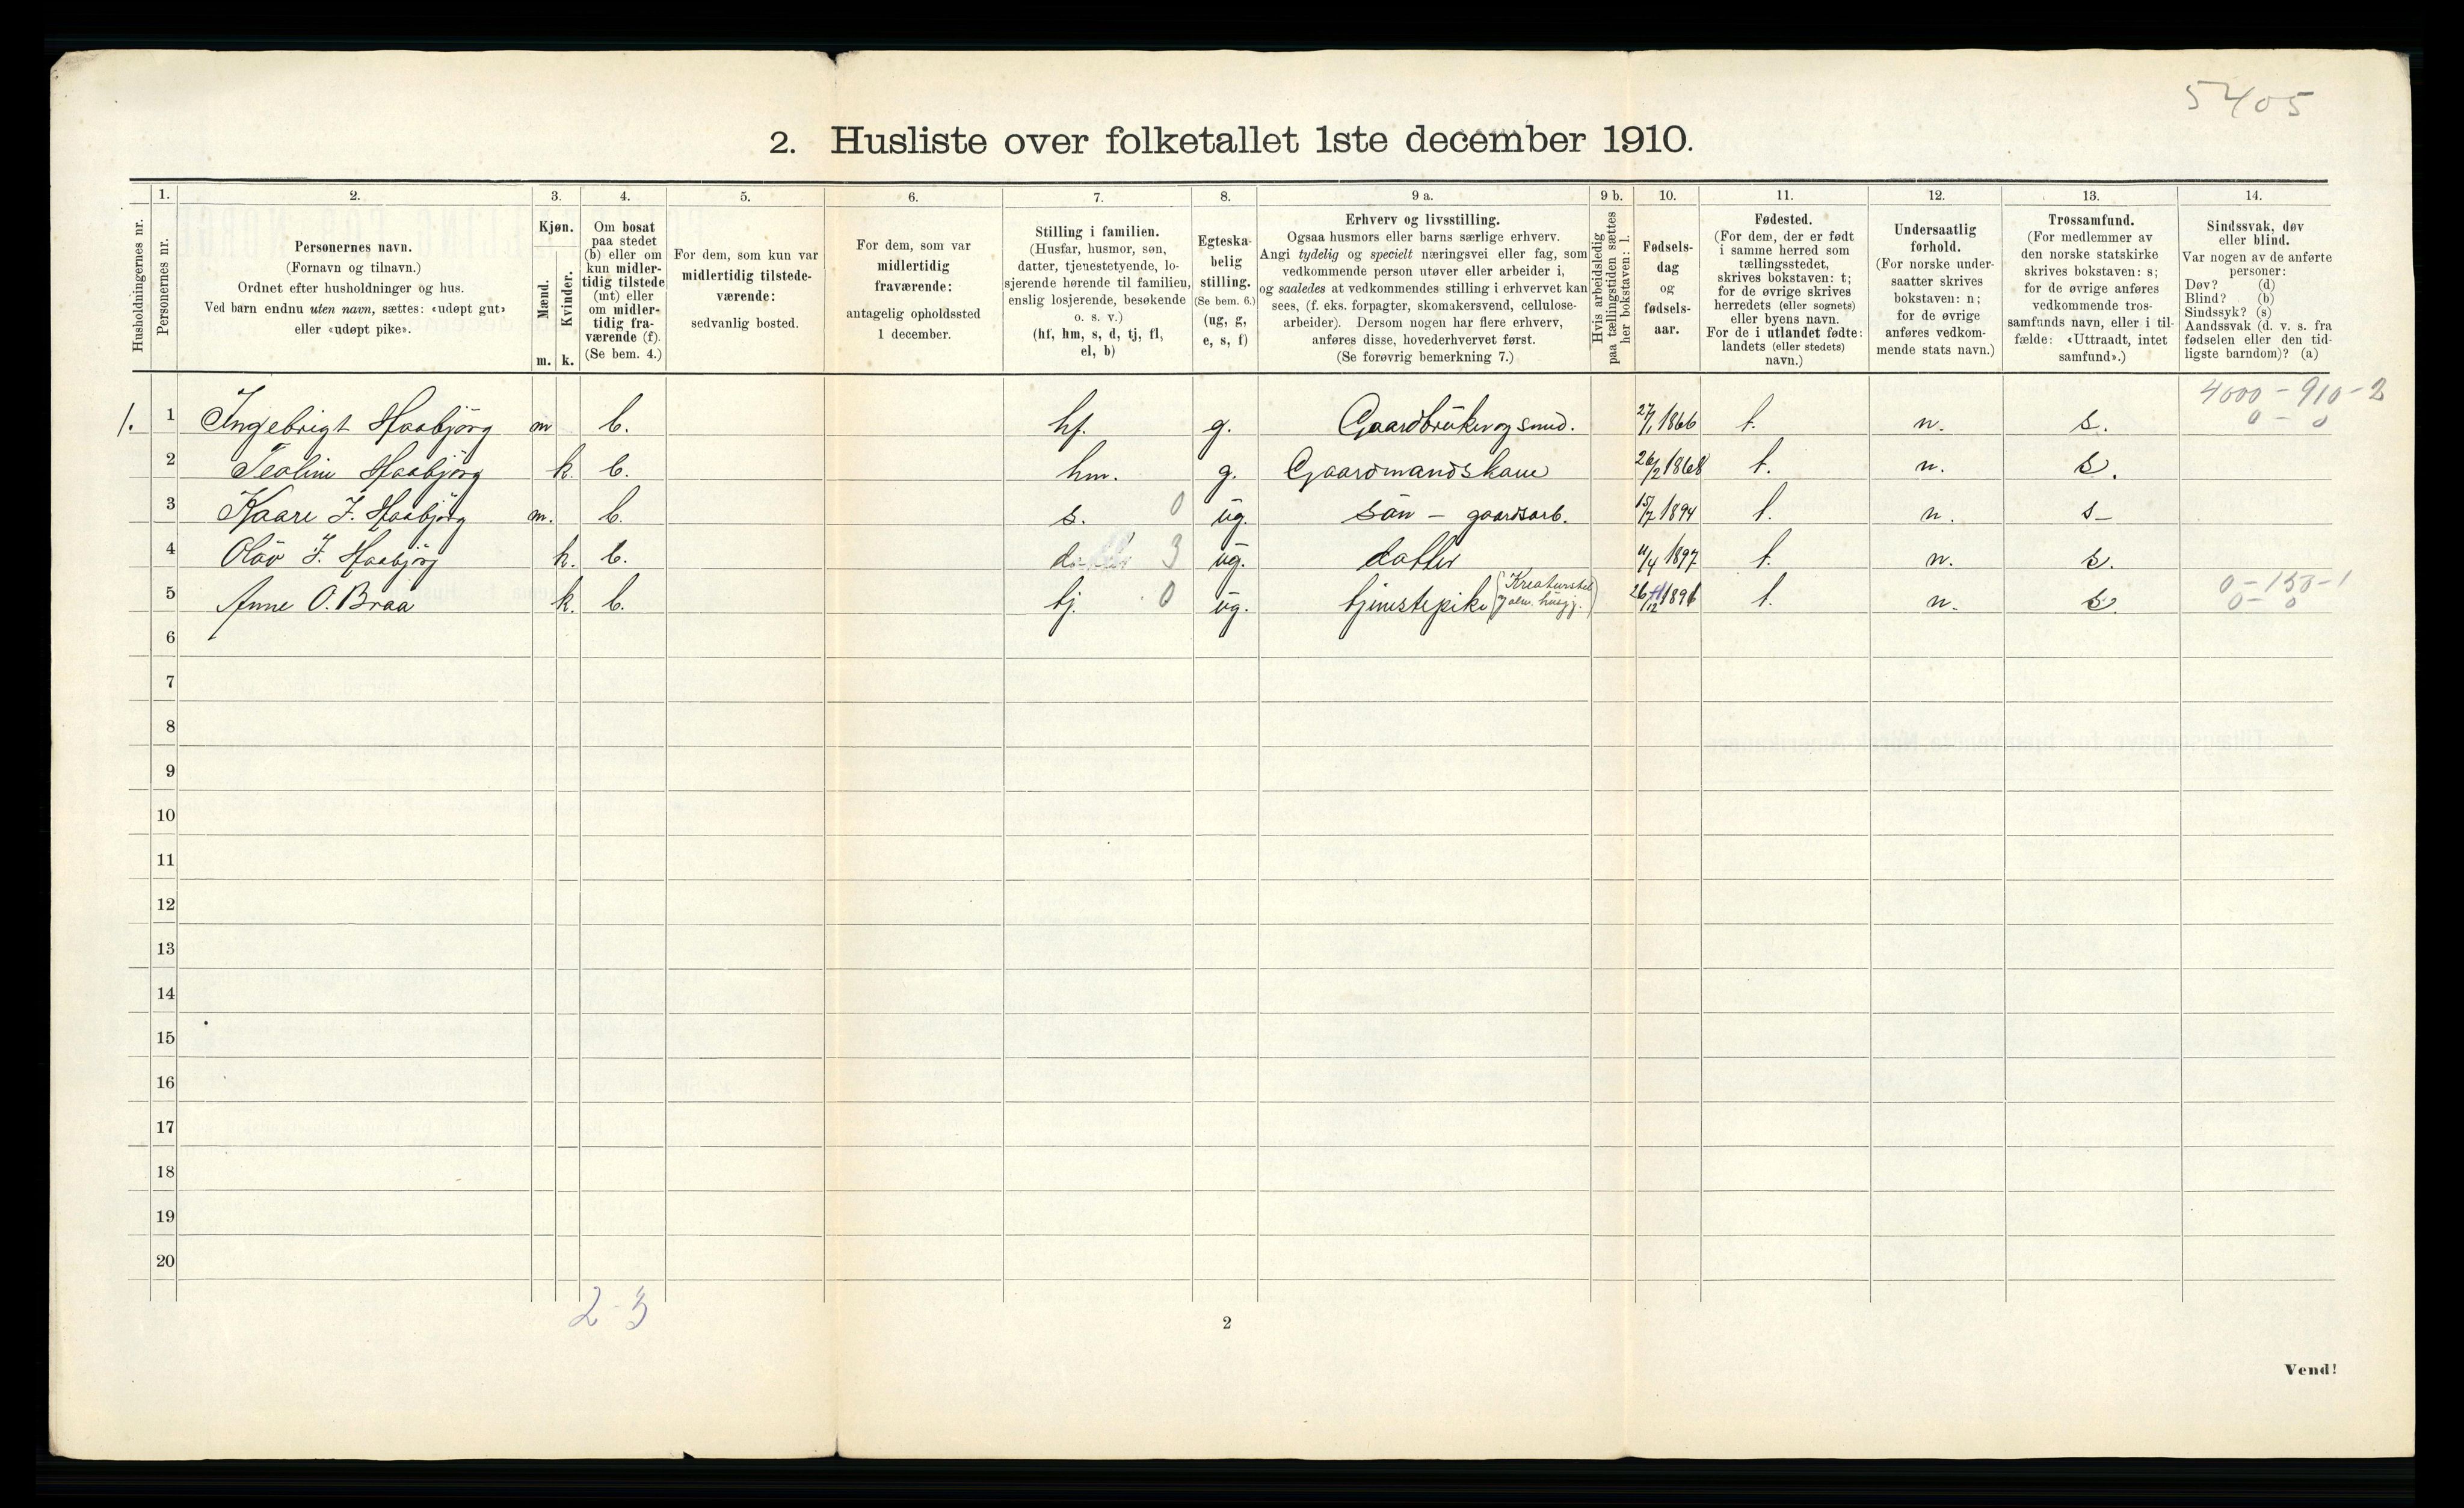 5405
2. Husliste over folketallet 1ste december 1910.
1. 2. 3. 4. 5. 6. 7. 8. 9 a. 9 b. 10. 11. 12. 13. 14.
Husholdningernes nr.
Personernes nr.
Personernes navn.
(Fornavn og tilnavn.)
Ordnet efter husholdninger og hus.
Ved barn endnu uten navn, sættes: «udøpt gut»
eller «udøpt pike».
Kjøn.
Mænd.
Kvinder.
m. k.
Om bosat
paa stedet
(b) eller om
kun midler-
tidig tilstede
(mt) eller
om midler-
tidig fra-
værende (f).
(Se bem. 4.)
For dem, som kun var
midlertidig tilstede-
værende:
sedvanlig bosted.
For dem, som var
midlertidig
fraværende:
antagelig opholdssted
1 december.
Stilling i familien.
(Husfar, husmor, søn,
datter, tjenestetyende, lo-
sjerende hørende til familien,
enslig losjerende, besøkende
o. s. v.)
(hf, hm, s, d, tj, fl,
el, b)
Egteska-
belig
stilling.
(Se bem. 6.)
(ug, g,
e, s, f)
Erhverv og livsstilling.
Ogsaa husmors eller barns særlige erhverv.
Angi tydelig og specielt næringsvei eller fag, som
vedkommende person utøver eller arbeider i,
og saaledes at vedkommendes stilling i erhvervet kan
sees, (f. eks. forpagter, skomakersvend, cellulose-
arbeider). Dersom nogen har flere erhverv,
anføres disse, hovederhvervet først.
(Se forøvrig bemerkning 7.)
Hvis arbeidsledig
paa tællingstiden sættes
her bokstaven: l.
Fødsels-
dag
og
fødsels-
aar.
Fødested.
(For dem, der er født
i samme herred som
tællingsstedet,
skrives bokstaven: t;
for de øvrige skrives
herredets (eller sognets)
eller byens navn.
For de i utlandet fødte:
landets (eller stedets)
navn.)
Undersaatlig
forhold.
(For norske under-
saatter skrives
bokstaven: n;
for de øvrige
anføres vedkom-
mende stats navn.)
Trossamfund.
(For medlemmer av
den norske statskirke
skrives bokstaven: s;
for de øvrige anføres
vedkommende tros-
samfunds navn, eller i til-
fælde: «Uttraadt, intet
samfund».)
Sindssvak, døv
eller blind.
Var nogen av de anførte
personer:
Døv? (d)
Blind? (b)
Sindssyk? (s)
Aandssvak (d. v. s. fra
fødselen eller den tid-
ligste barndom)? (a)
4000 - 910 - 2
0 - 0
1. 1 Ingebrigt Haabjørg m b. hf. g. Gaardbruker og smed. 27/1 1866 t. n. s.
2 Teoline Haabjørg k. b. hm. g. Gaardmandskone 26/2 1868 t. n. s.
3 Kaare I. Haabjørg m. b. s. 0 ug. søn - gaardsarb. 15/7 1894 t. n. s-
4 Oløv I. Haabjørg k. b. d. 3 ug. datter 11/4 1897 t. n. s.
5 Anne O. Braa k. b. tj. 0 ug. tjenestepike (Kreaturstel og alm. husgj.) 26/12 1896 t. n. s. 0 - 150 - 1
0 - 0
6
7
8
9
10
11
12
13
14
15
16
17
18
19
20
2 - 3
2
Vend!